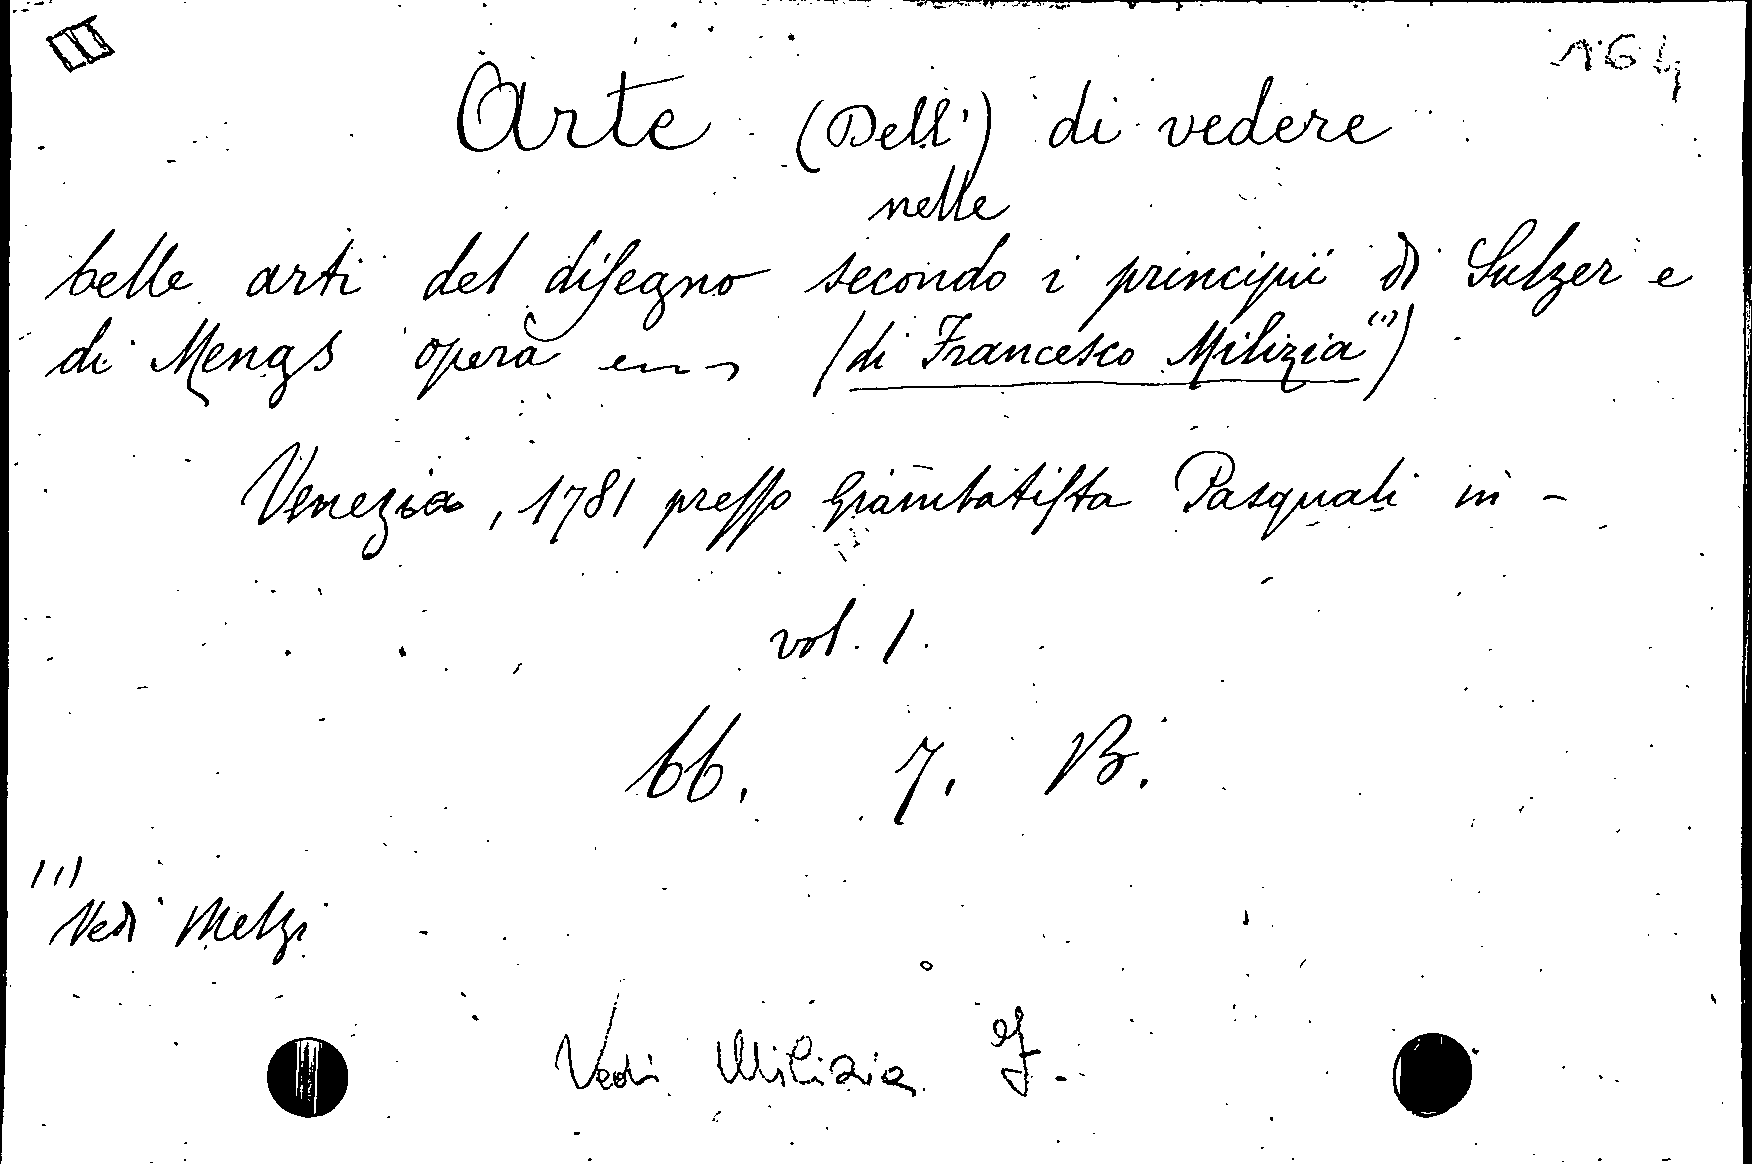 164
Arte (Dell') di vedere
nelle
belle arti del disegno secondo i principii di Sulzer e
di Mengs opera (di Francesco Milizia (1))
Venezia, 1781 presso Giambatista Pasquali in -
vol. 1.
66. 7. B.
(1)
Vedi Melzi
Vedi Milizia F.